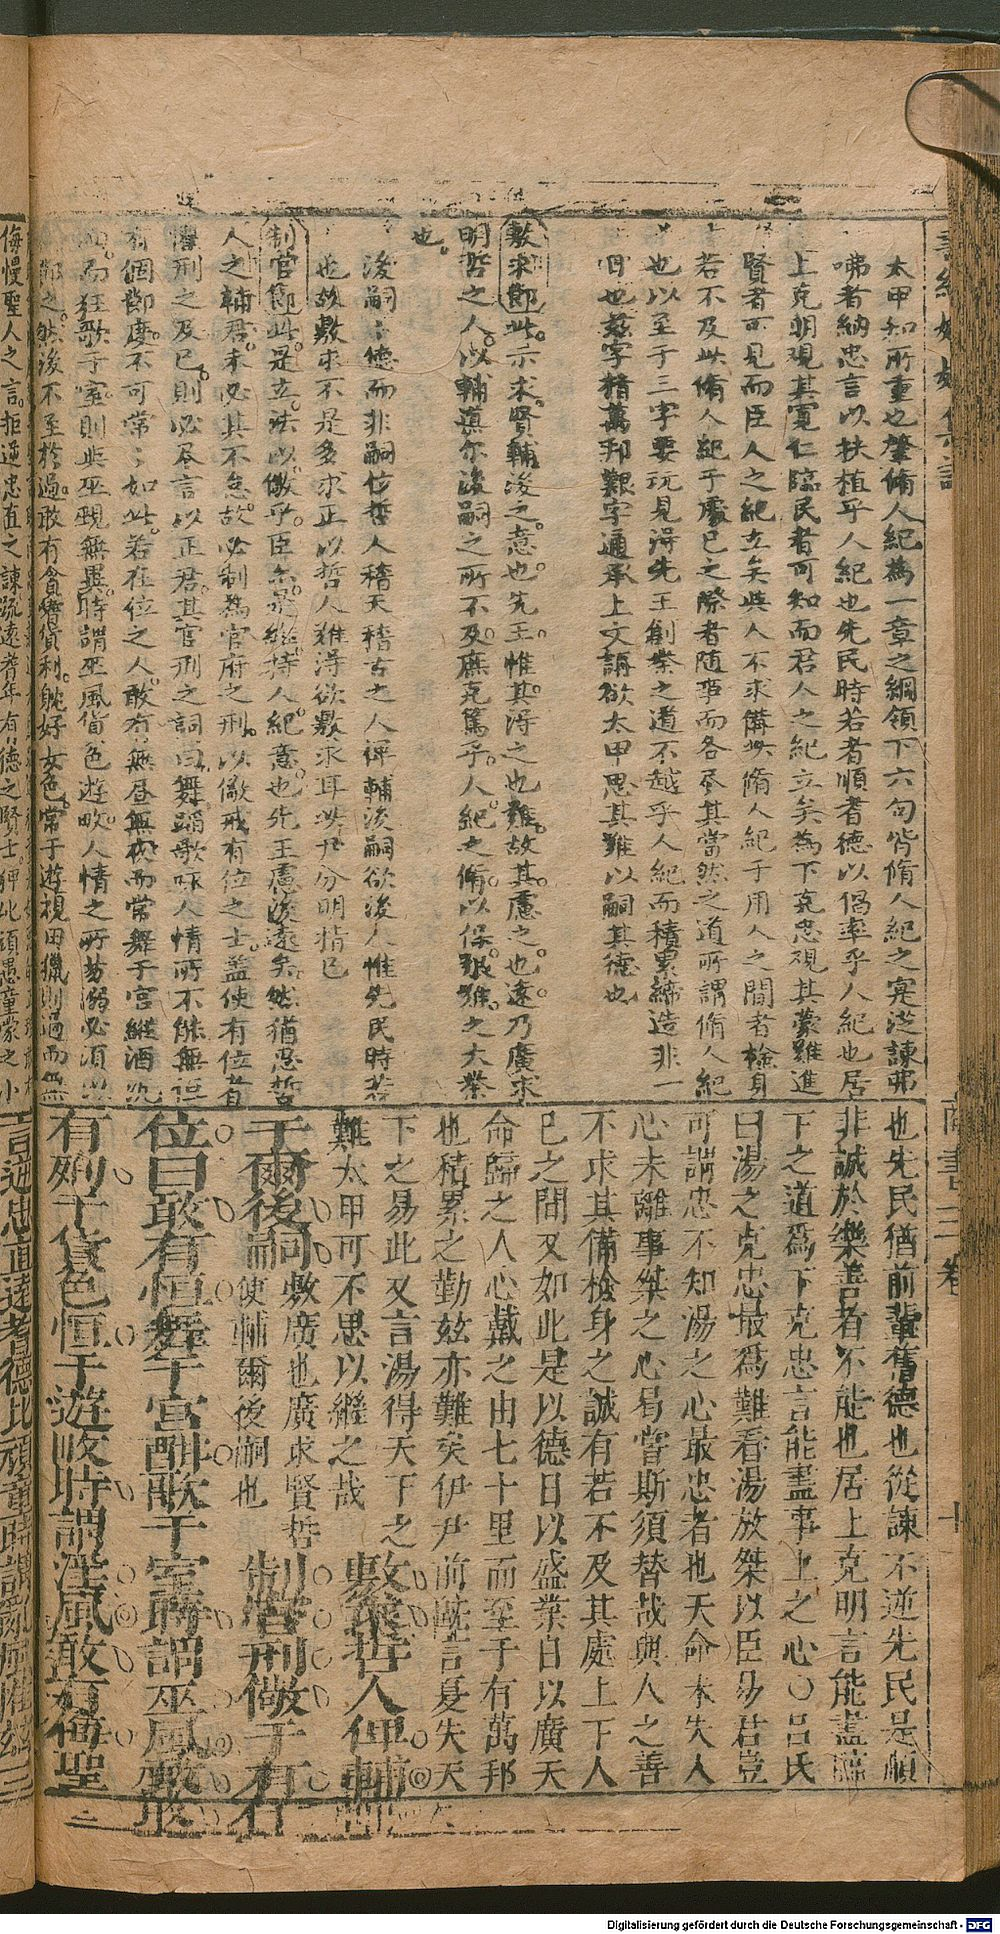 太甲知所重也肇脩人紀為一章之綱領下六句皆脩人紀之寔從諫弗
咈者納忠言以扶植乎人紀也先民時若者順耆德以倡率乎人紀也居
上克明視其寬仁臨民者可知而君人之紀立矣為下克忠視其蒙難進
賢者可見而臣人之紀立矣與人不求備此脩人紀于用人之間者檢身
若不及此脩人紀于處已之際者随事而各尽其當然之道所謂脩人紀
也以至于三字要玩見得先王創業之道不越乎人紀而積累締造非一
日也茲字稽萬邦艱字通承上文講欲太甲思其難以嗣其德也
敷求節此示求賢輔後之意也先王惟其得之也難故其慮之也遠乃廣求
明哲之人以輔導尔後嗣之所不及庶克篤乎人紀之脩以保艱難之大業
也
後嗣嗣德而非嗣位哲人稽天稽古之人俾輔後嗣欲後人惟先民時若
也故敷求不是多求正以哲人难得欲敷求耳此尹分明指已
制官節此是立法以儆乎臣亦是維持人紀意也先王慮後遠矣然猶恐哲
人之輔君未必其不怠故必制為官府之刑以儆戒有位之士盖使有位者
惧刑之及已則必尽言以正君其官刑之詞曰舞蹈歌咏人情所不能無
有個節度不可常常如此若在位之人敢有無昼無夜而常舞于宫維酒
而狂歌于室則與巫覡無異時謂巫風貨色遊畋人情之所易溺必須
節之然後不至於過敢有貪嗜貨利眈好女色常于遊視田猟則過而無
侮慢聖人之言拒逆忠直之諫疏遠耆年有德之賢士狎比頑愚童蒙之小
商書 三卷
十
也先民猶前輩舊德也從諫不逆先民是順
非誠於樂善者不能也居上克明言能盡臨
下之道爲下克忠言能盡事上之心○呂氏
曰湯之克忠最爲難看湯放桀以臣易君豈
可謂忠不知湯之心最忠者也天命未失人
心未離事桀之心曷嘗斯須替哉與人之善
不求其備檢身之誠有若不及其處上下人
已之間又如此是以德日以盛業日以廣天
命歸之人心戴之由七十里而至于有萬邦
也積累之勤兹亦難矣伊尹前既言夏失天
下之易此又言湯得天下之
難太甲可不思以繼之哉
敷求哲人俾輔
于爾後嗣
敷廣也廣求賢哲
使輔爾後嗣也
制官刑儆于有
位曰敢有恒舞于宮酣歌于室時謂巫風敢
有殉于貨色恒于遊畋時謂淫風敢有侮聖
言逆忠直遠耆德比頑童時謂亂風惟茲三
Digitalisierung gefördert durch die Deutsche Forschungsgemeinschaft - DFG